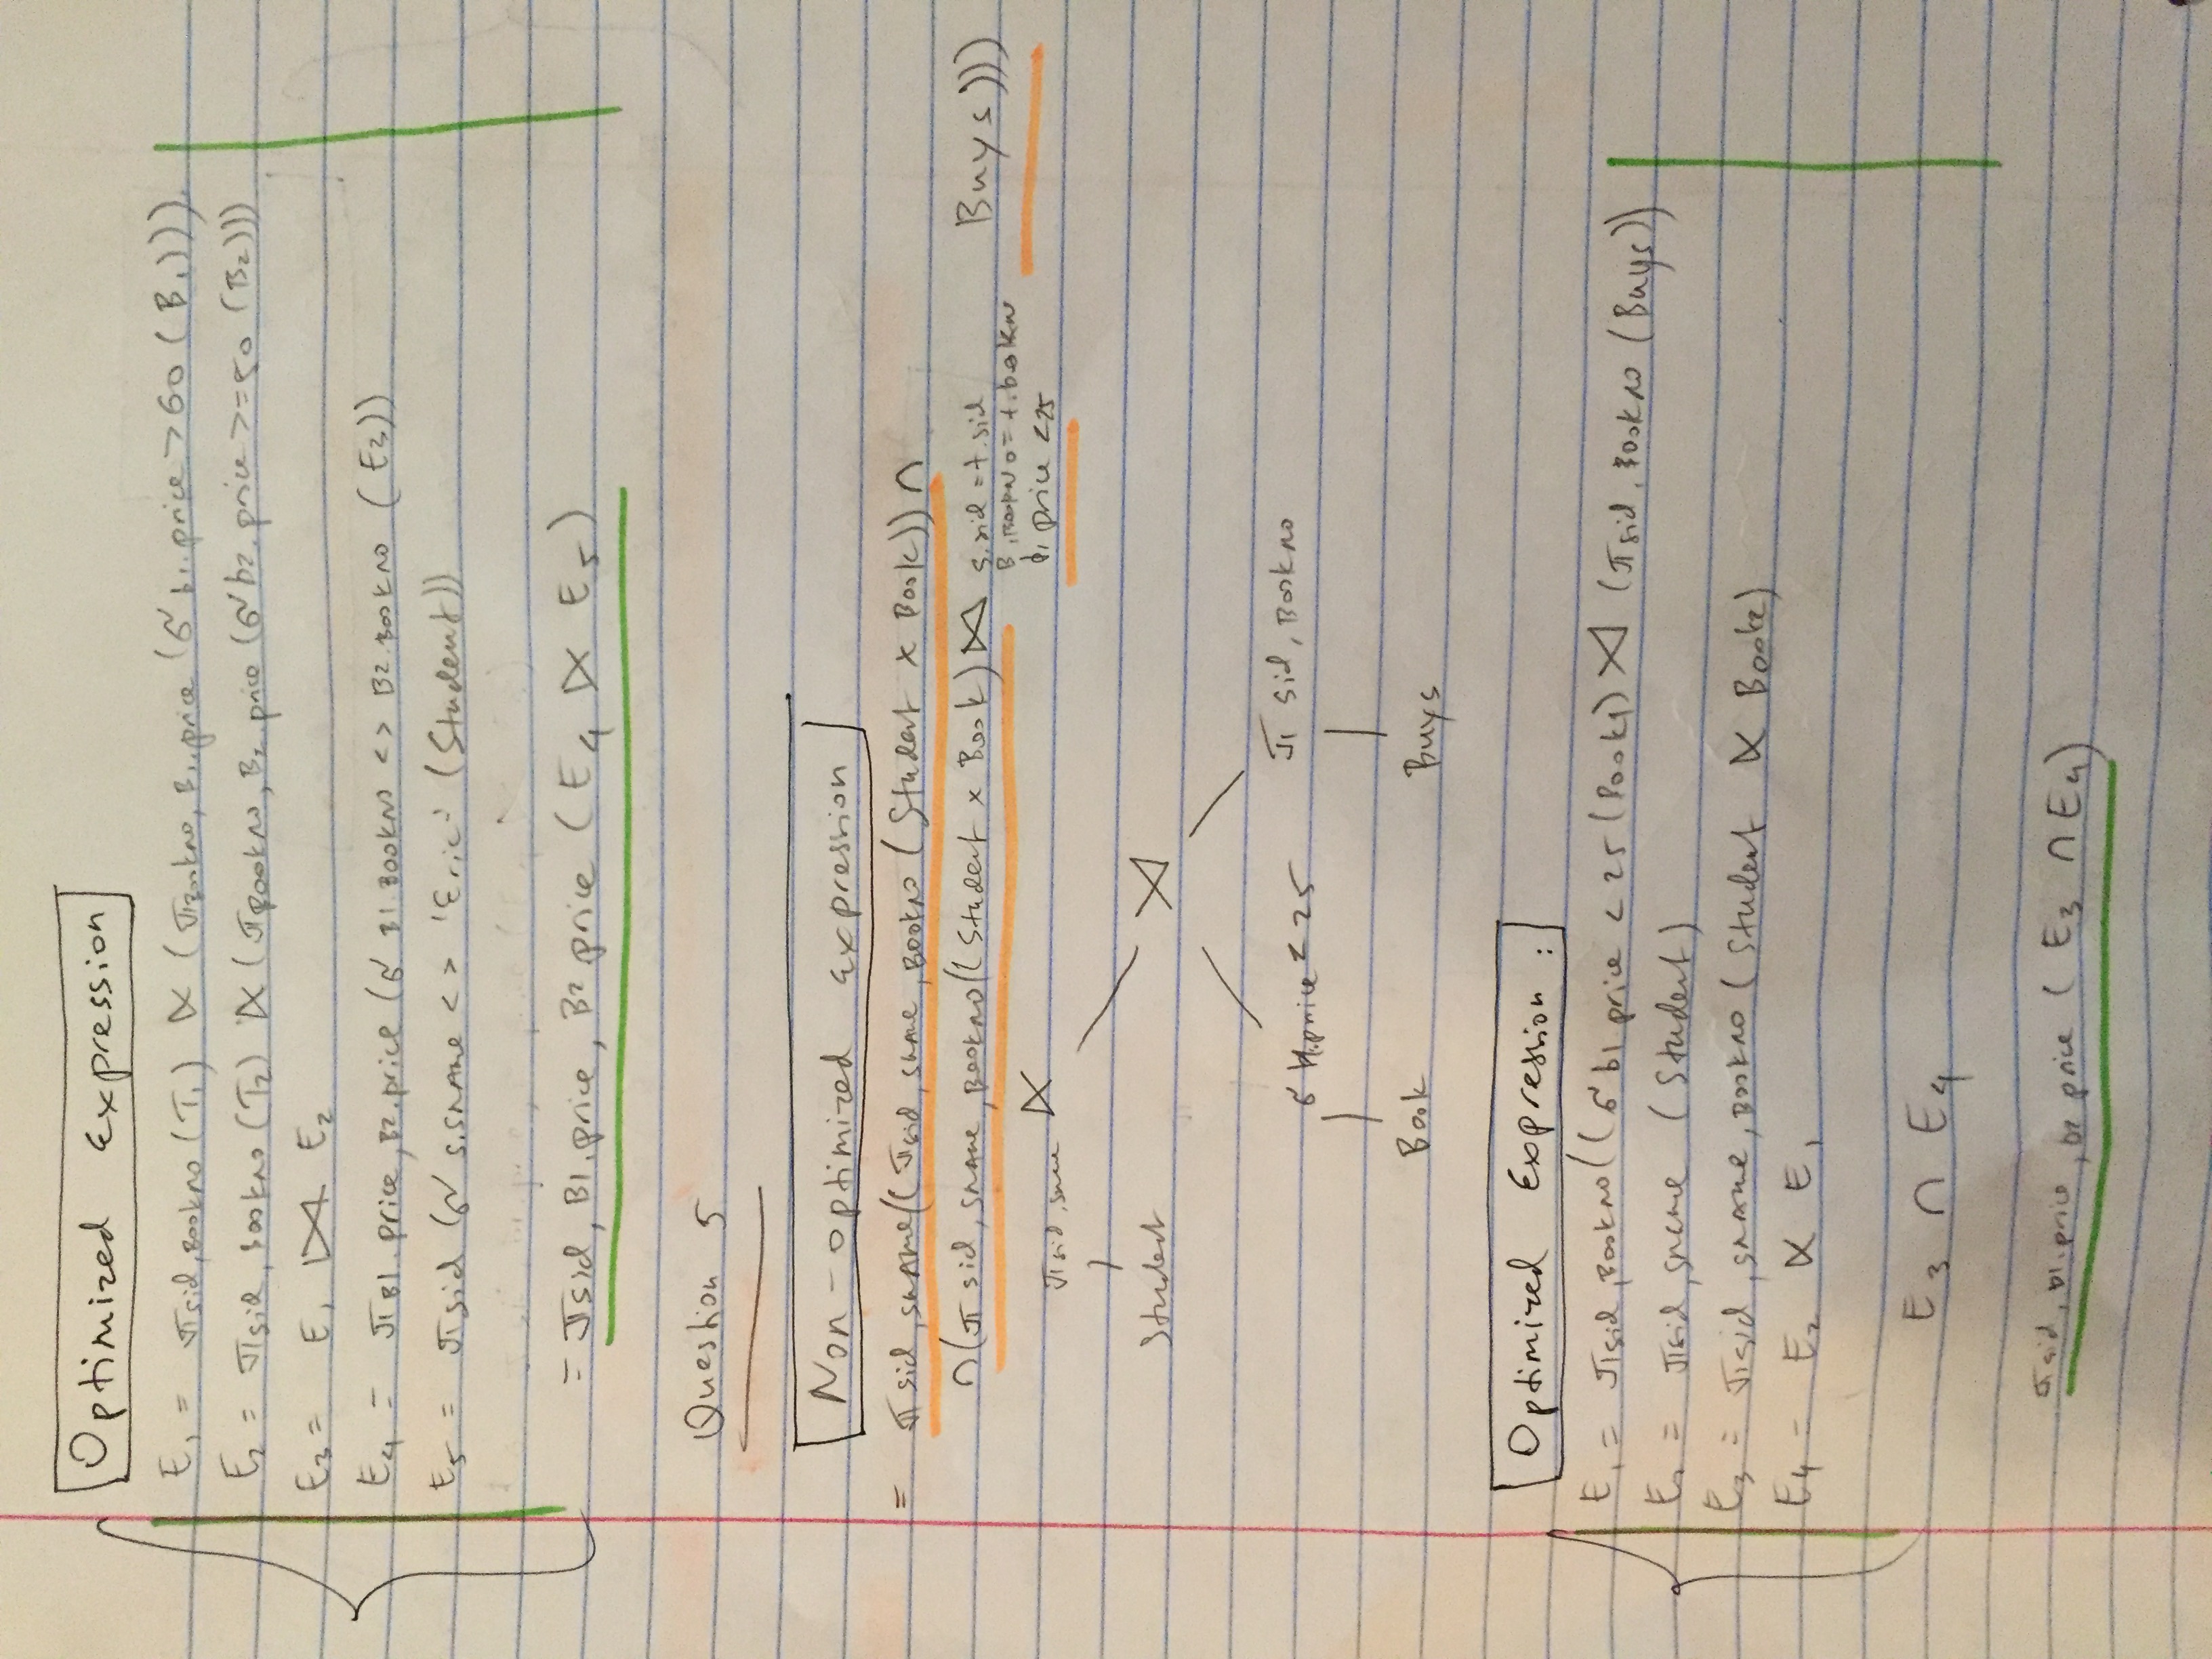 Optimized Expression
E₁ = π sid, BookNo (T₁) ⋉ (π BookNo, B₁.price (σ b₁.price > 60 (B₁)))
E₂ = π sid, BookNo (T₂) ⋉ (π BookNo, B₂.price (σ b₂.price >= 50 (B₂)))
E₃ = E₁ ⋈ E₂
E₄ = π B1.price, B2.price (σ B1.BookNo <> B2.BookNo (E₃))
E₅ = π sid (σ s.sname <> 'Eric' (Student))
= π sid, B1.price, B2 price (E₄ ⋉ E₅)
Question 5
Non-optimized expression
= π sid, sname((π sid, sname, BookNo (Student × Book)) ∩
∩(π sid, sname, BookNo((Student × Book) ⋈ s.sid = t.sid Buys)))
B, BookNo = t.bokn
b, price < 25
π sid, sname ⋉
Student
⋊
σ b1.price < 25 π sid, BookNo
Book Buys
Optimized Expression :
E₁ = π sid, BookNo((σ b1 price < 25 (Book1) ⋊ (π sid, BookNo (Buys))
E₂ = π sid, sname (Student)
E₃ = π sid, sname, BookNo (Student ⋉ Book2)
E₄ = E₂ ⋉ E₁
E₃ ∩ E₄
π sid, b1.price, b2 price (E₃ ∩ E₄)